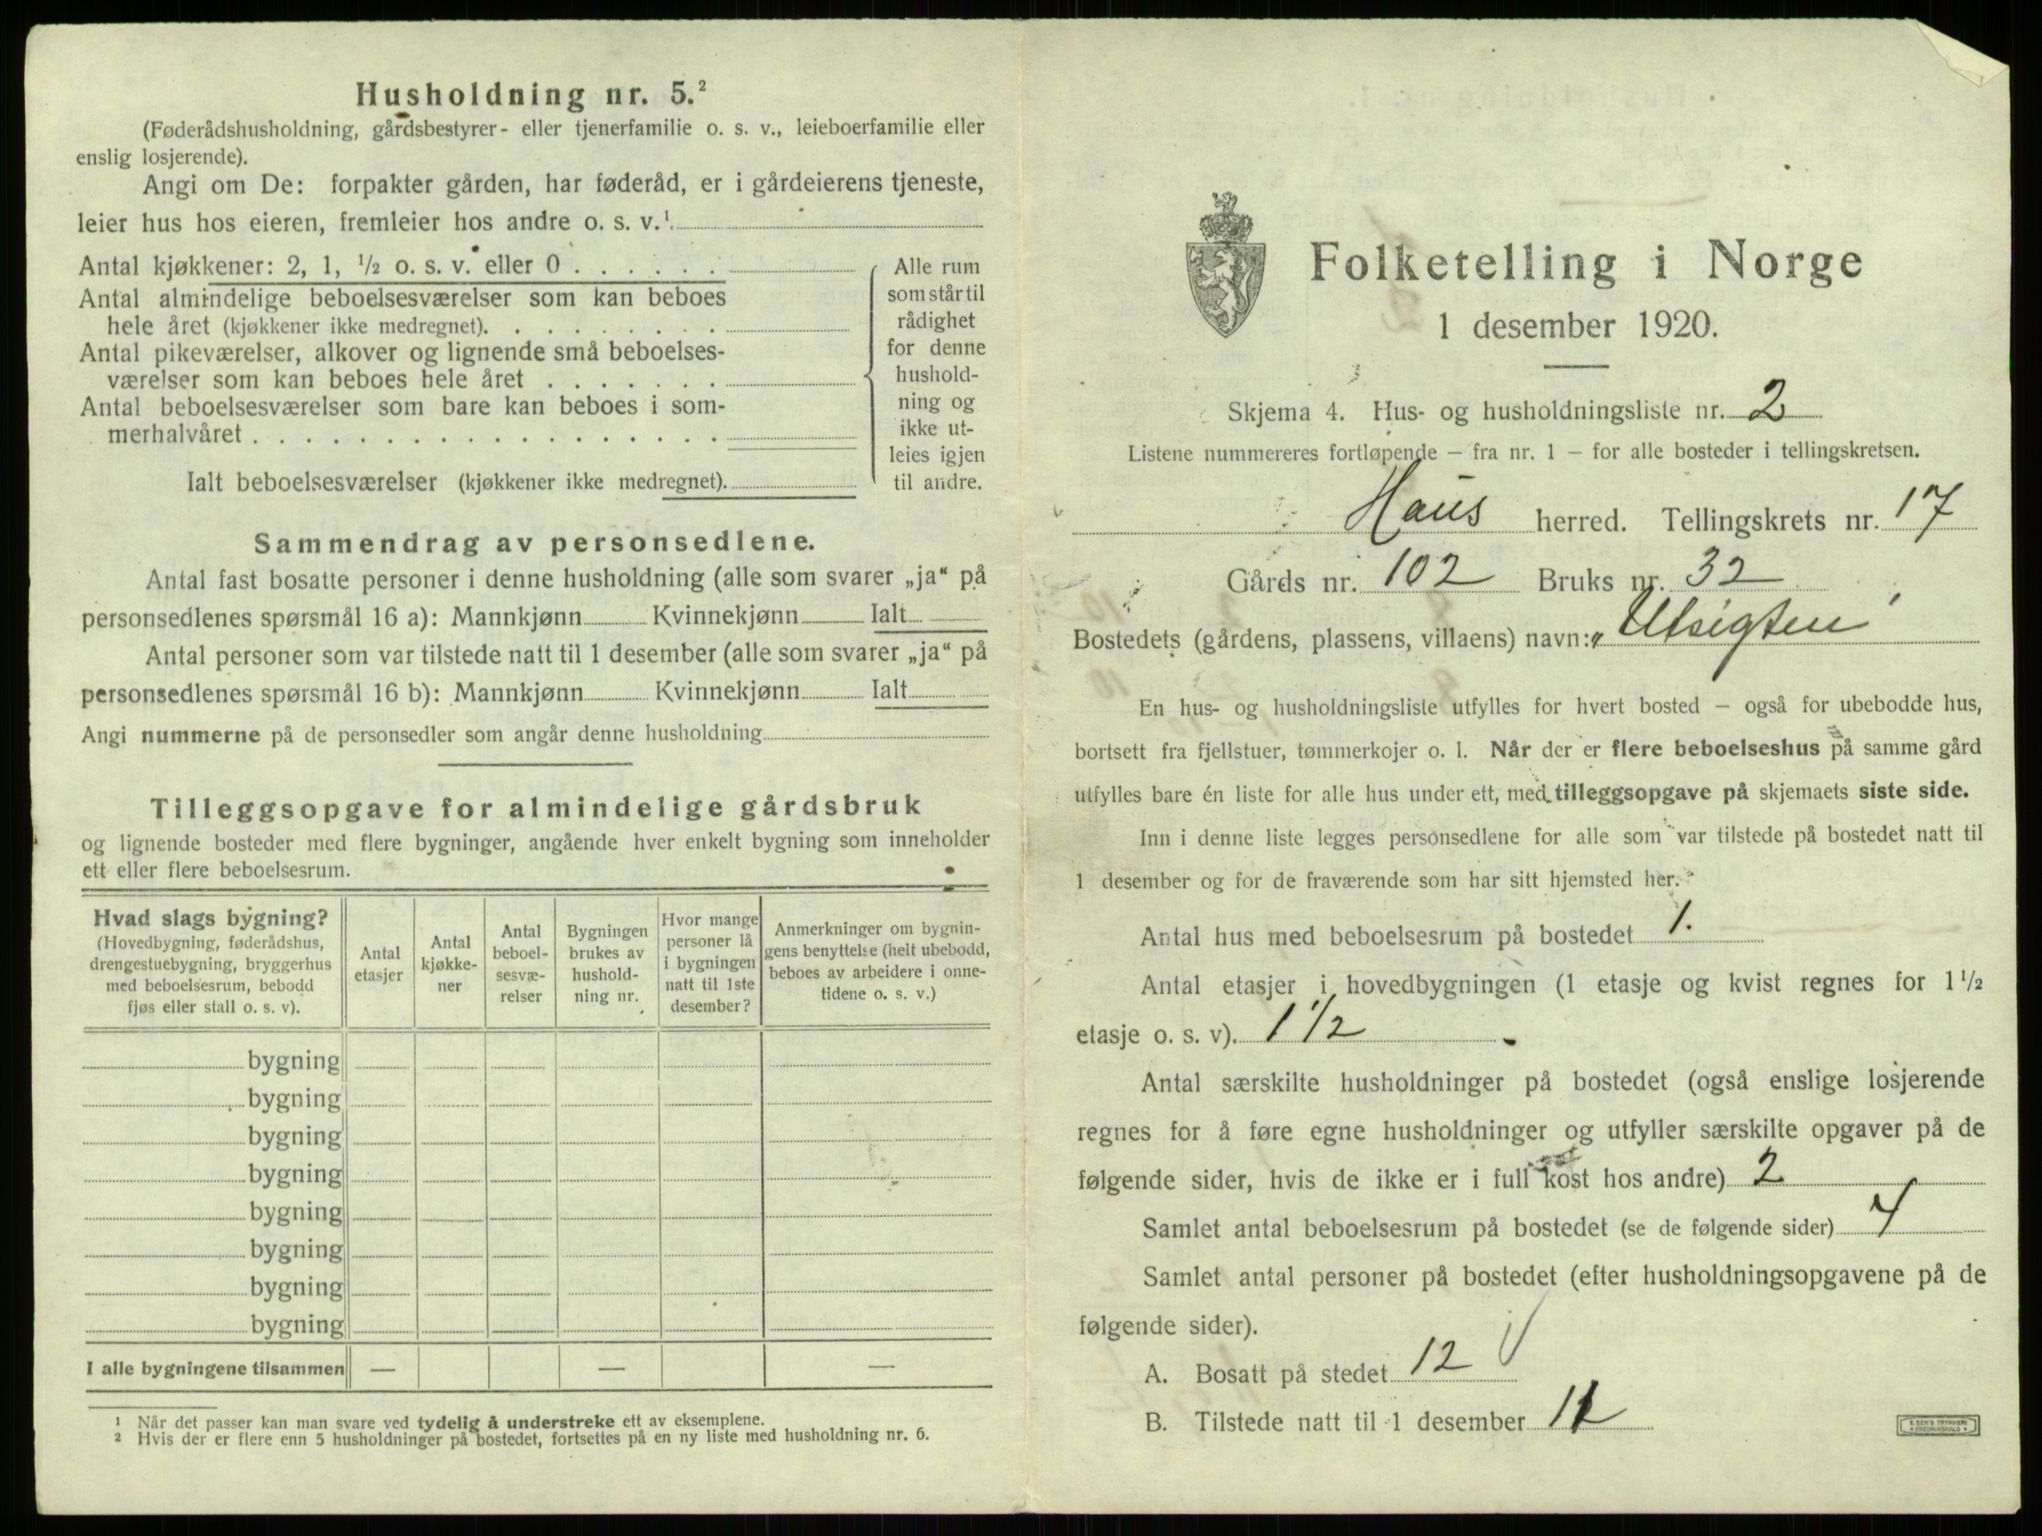 Husholdning nr. 5.²
(Føderådshusholdning, gårdsbestyrer- eller tjenerfamilie o. s. v., leieboerfamilie eller
enslig losjerende).
Angi om De: forpakter gården, har føderåd, er i gårdeierens tjeneste,
leier hus hos eieren, fremleier hos andre o. s. v.¹
Antal kjøkkener: 2, 1, ½ o. s. v. eller 0 . . . . . .
Antal almindelige beboelsesværelser som kan beboes
hele året (kjøkkener ikke medregnet). . . . . . . . .
Antal pikeværelser, alkover og lignende små beboelses-
værelser som kan beboes hele året . . . . . . .
Antal beboelsesværelser som bare kan beboes i som-
merhalvåret . . . . . . . . . . . . . . . . . .
Ialt beboelsesværelser (kjøkkener ikke medregnet).
Alle rum
som står til
rådighet
for denne
hushold-
ning og
ikke ut-
leies igjen
til andre.
Sammendrag av personsedlene.
Antal fast bosatte personer i denne husholdning (alle som svarer „ja“ på
personsedlenes spørsmål 16 a): Mannkjønn Kvinnekjønn Ialt
Antal personer som var tilstede natt til 1 desember (alle som svarer „ja“ på
personsedlenes spørsmål 16 b): Mannkjønn Kvinnekjønn Ialt
Angi nummerne på de personsedler som angår denne husholdning
Tilleggsopgave for almindelige gårdsbruk
og lignende bosteder med flere bygninger, angående hver enkelt bygning som inneholder
ett eller flere beboelsesrum.
Hvad slags bygning?
(Hovedbygning, føderådshus,
drengestuebygning, bryggerhus
med beboelsesrum, bebodd
fjøs eller stall o. s. v).
Antal
etasjer
Antal
kjøkke-
ner
Antal
beboel-
sesvæ-
relser
Bygningen
brukes av
hushold-
ning nr.
Hvor mange
personer lå
i bygningen
natt til 1ste
desember?
Anmerkninger om bygnin-
gens benyttelse (helt ubebodd,
beboes av arbeidere i onne-
tidene o. s. v.)
bygning
bygning
bygning
bygning
bygning
bygning
bygning
bygning
I alle bygningene tilsammen — — —
¹ Når det passer kan man svare ved tydelig å understreke ett av eksemplene.
² Hvis der er flere enn 5 husholdninger på bostedet, fortsettes på en ny liste med husholdning nr. 6.
Folketelling i Norge
1 desember 1920.
Skjema 4. Hus- og husholdningsliste nr. 2
Listene nummereres fortløpende – fra nr. 1 – for alle bosteder i tellingskretsen.
Haus herred. Tellingskrets nr. 17
Gårds nr. 102 Bruks nr. 32
Bostedets (gårdens, plassens, villaens) navn: „Utsigten“
En hus- og husholdningsliste utfylles for hvert bosted – også for ubebodde hus,
bortsett fra fjellstuer, tømmerkojer o. l. Når der er flere beboelseshus på samme gård
utfylles bare én liste for alle hus under ett, med tilleggsopgave på skjemaets siste side.
Inn i denne liste legges personsedlene for alle som var tilstede på bostedet natt til
1 desember og for de fraværende som har sitt hjemsted her.
Antal hus med beboelsesrum på bostedet 1.
Antal etasjer i hovedbygningen (1 etasje og kvist regnes for 1½
etasje o. s. v). 1 1/2
Antal særskilte husholdninger på bostedet (også enslige losjerende
regnes for å føre egne husholdninger og utfyller særskilte opgaver på de
følgende sider, hvis de ikke er i full kost hos andre) 2
Samlet antal beboelsesrum på bostedet (se de følgende sider) 4
Samlet antal personer på bostedet (efter husholdningsopgavene på de
følgende sider).
A. Bosatt på stedet 12
B. Tilstede natt til 1 desember